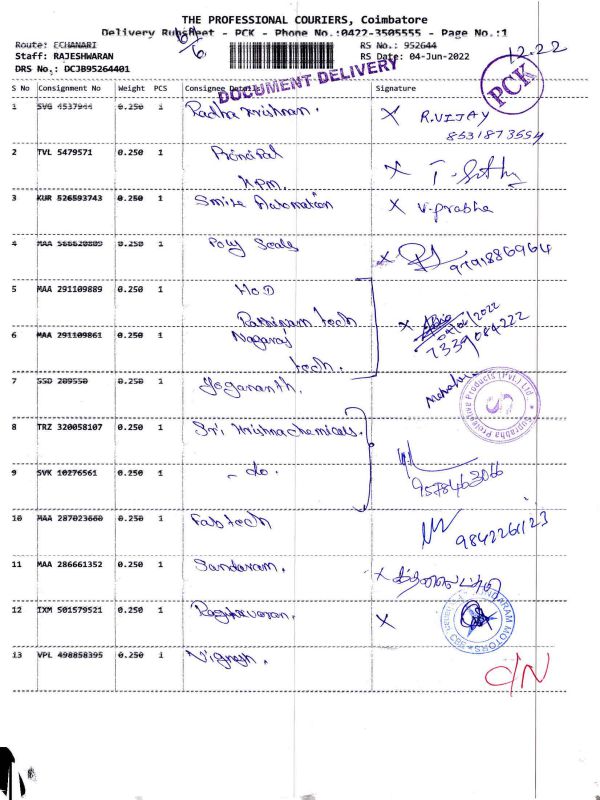 THE PROFESSIONAL COURIERS, Coimbatore
Delivery RunSheet - PCK - Phone No.:0422-3505555 - Page No.:1
Route: ECHANARI
RS No.: 952644
Staff: RAJESHWARAN
RS Date: 04-Jun-2022
DRS No.: DCJB95264401
6/6
12.22
PCK
DOCUMENT DELIVERY
S No Consignment No Weight PCS Consignee Details Signature
1 SVG 4537944 0.250 1 Radha Krishnan. X R.VIJAY
8531873554
2 TVL 5479571 0.250 1 Principal X
KPM.
3 KUR 526593743 0.250 1 Smile Automation X V.prabha
4 MAA 566620809 0.250 1 Poly Seals X
9791886964
5 MAA 291109889 0.250 1 H.O.D
Rathinam tech X
7339084222
6 MAA 291109861 0.250 1 Nagaraj
tech.
7 SSD 209550 0.250 1 Yogananth.
Suprabha Protective Products (Pvt.) Ltd
8 TRZ 320058107 0.250 1 Sri Krishna chemicals.
9 SVK 10276561 0.250 1 - do. 9578463066
10 MAA 287023660 0.250 1 Fab tech 9842261123
11 MAA 286661352 0.250 1 Sandaram. X
12 IXM 501579521 0.250 1 Raghavaran. X
MOTORS
13 VPL 498858395 0.250 1 Vignesh. D/N